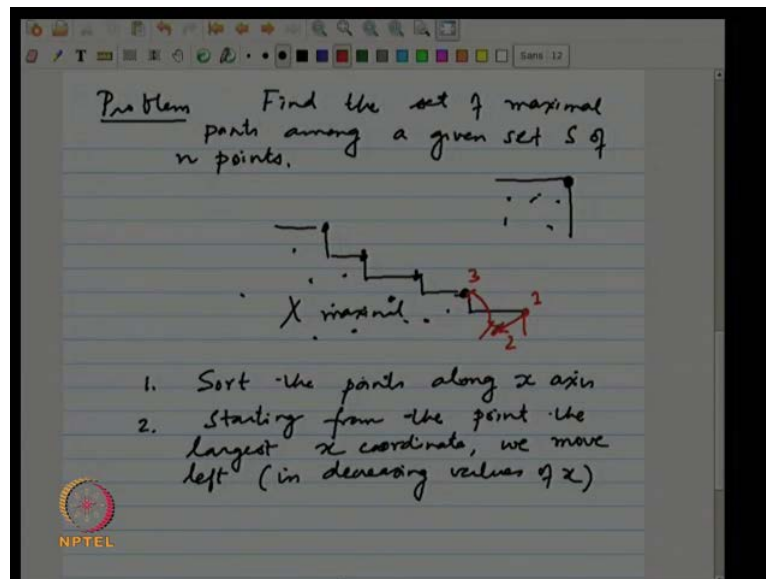 T Sans 12
Problem Find the set of maximal
points among a given set S of
n points.
3
1
X maximal
2
1. Sort the points along x axis
2. Starting from the point the
largest x coordinate, we move
left (in decreasing values of x)
NPTEL